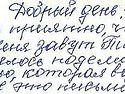 Добрый день
приятно, ч
меня зовут Т
лось подели
о, которая в
это письмо